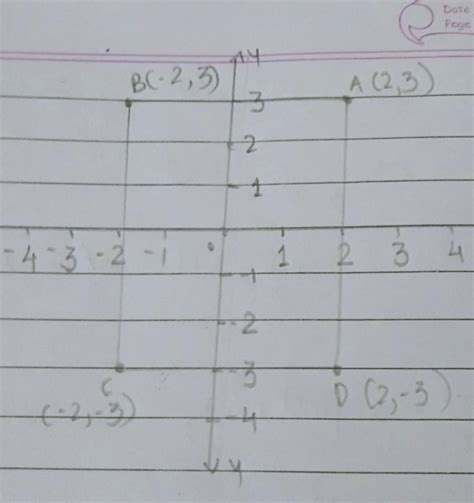 Date
Page
Y
B(-2,3)
A (2,3)
3
2
1
-4 -3 -2 -1 0 1 2 3 4
-1
-2
-3
C
D (2,-3)
(-2,-3)
-4
Y